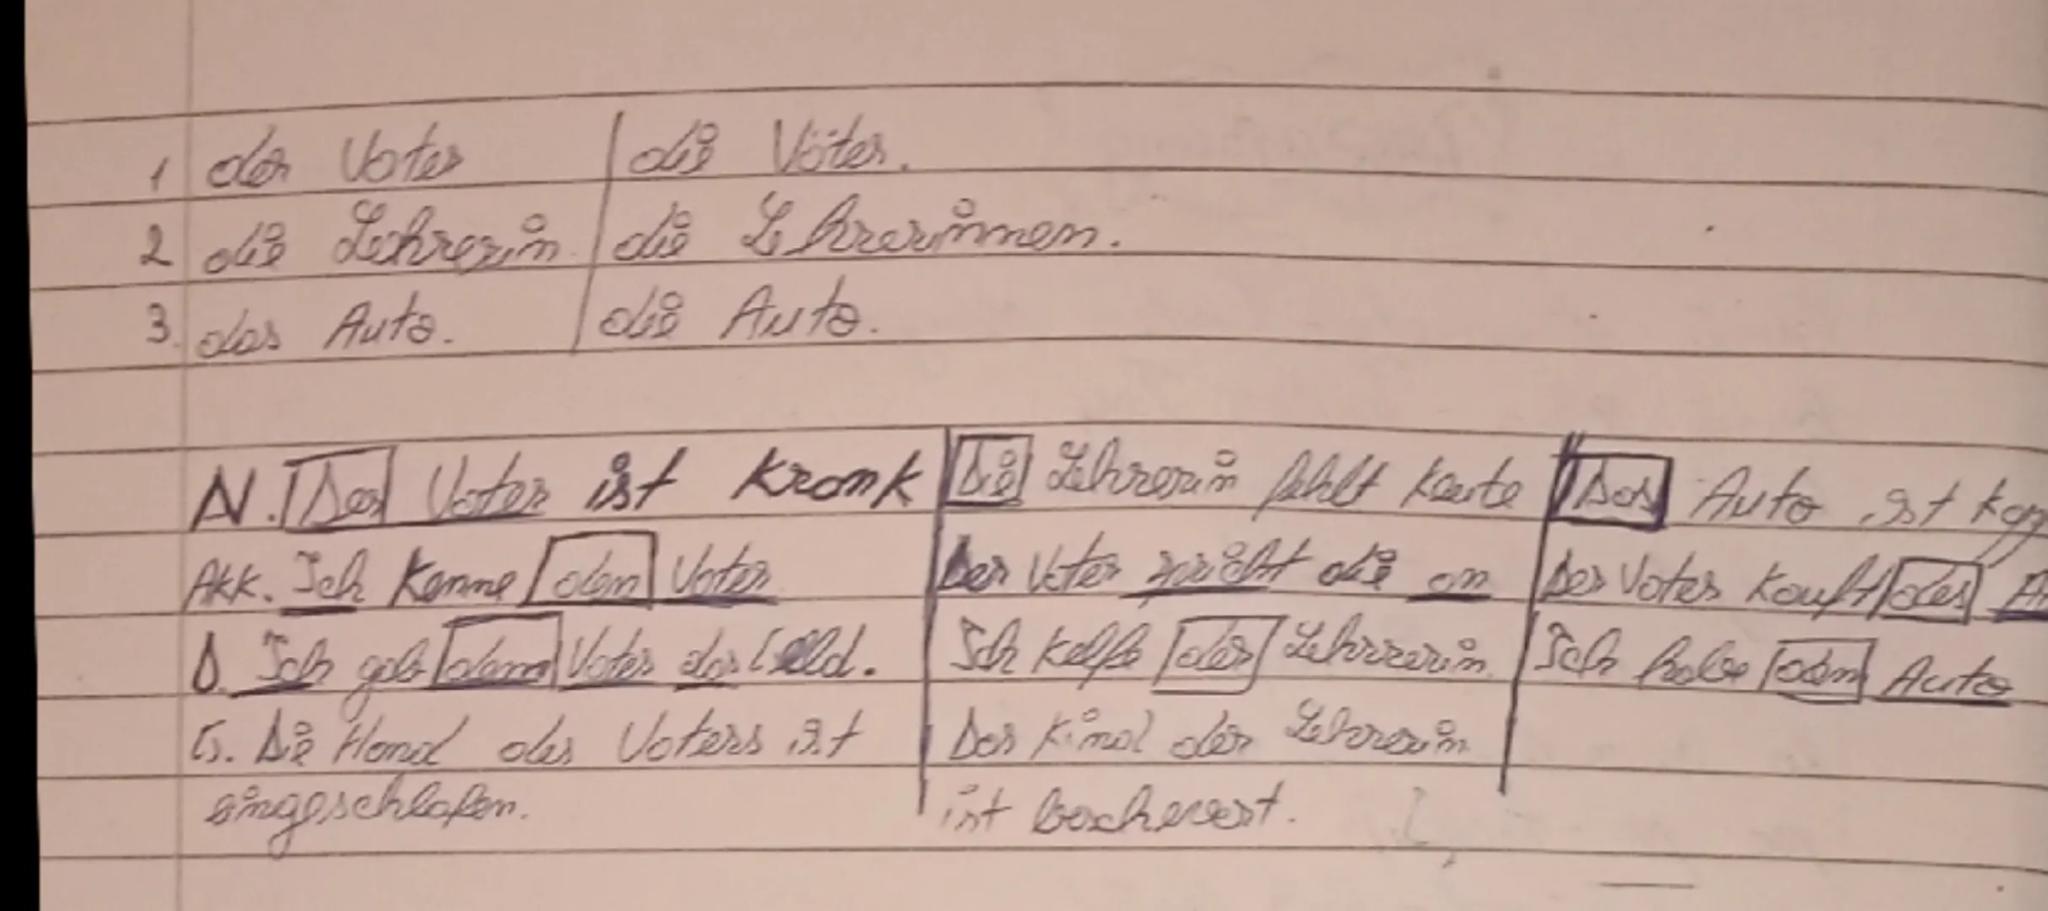 1 der Vater | die Väter.
2 die Lehrerin | die Lehrerinnen.
3. das Auto. | die Auto.
N. Der Vater ist krank | Die Lehrerin fehlt heute | Das Auto ist
Akk. Ich kenne den Vater | Der Vater spricht die an | Der Vater kauft das
D. Ich gab dem Vater das Geld. | Ich helfe der Lehrerin | Ich habe dem Auto
G. Die Hand des Vaters ist | Das Kind der Lehrerin
eingeschlafen. | ist bescheuert.